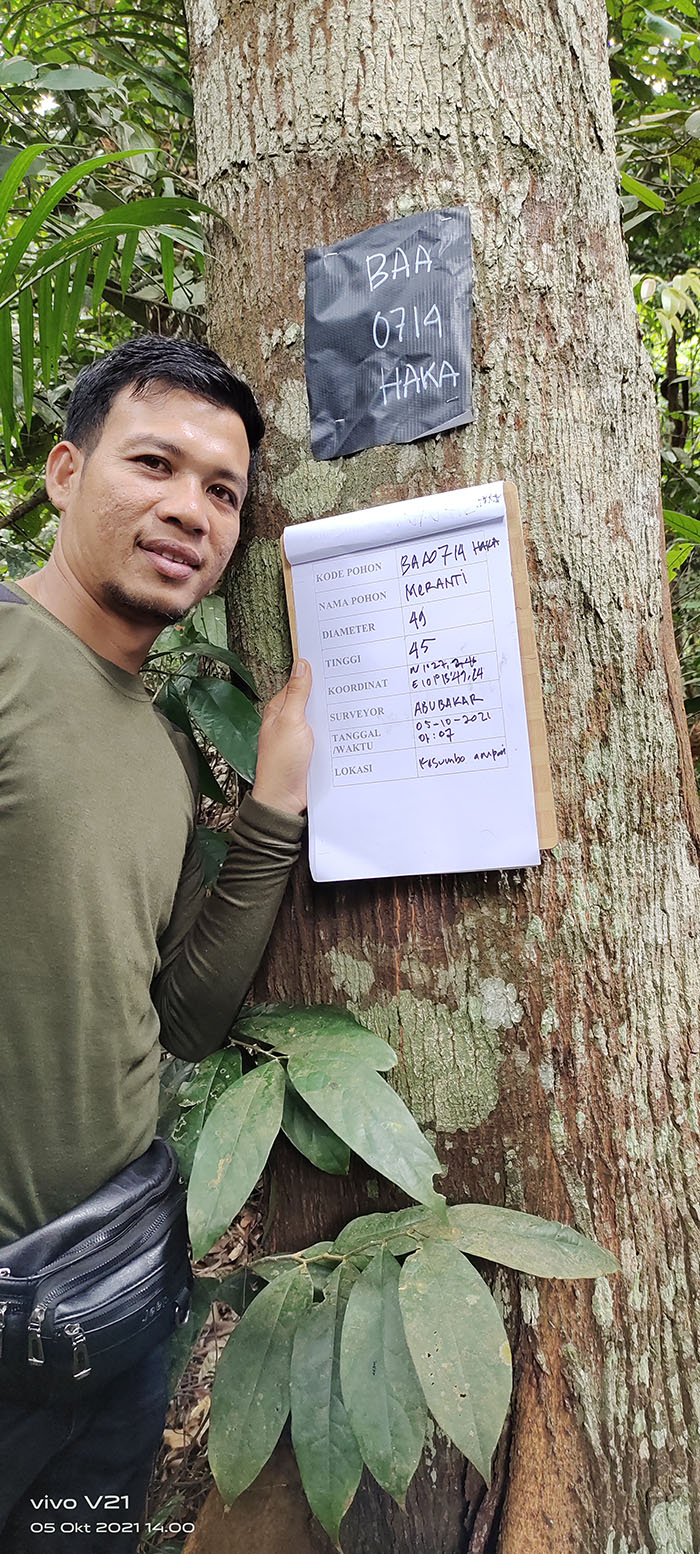 BAA
0714
HAKA
KODE POHON BAA0714 HAKA
NAMA POHON MERANTI
DIAMETER 49
TINGGI 45
KOORDINAT N 1°27,
E 101°13'47.64
SURVEYOR ABUBAKAR
TANGGAL 05-10-2021
/WAKTU 01:07
LOKASI Kesumbo ampai
vivo V21
05 Okt 2021 14.00